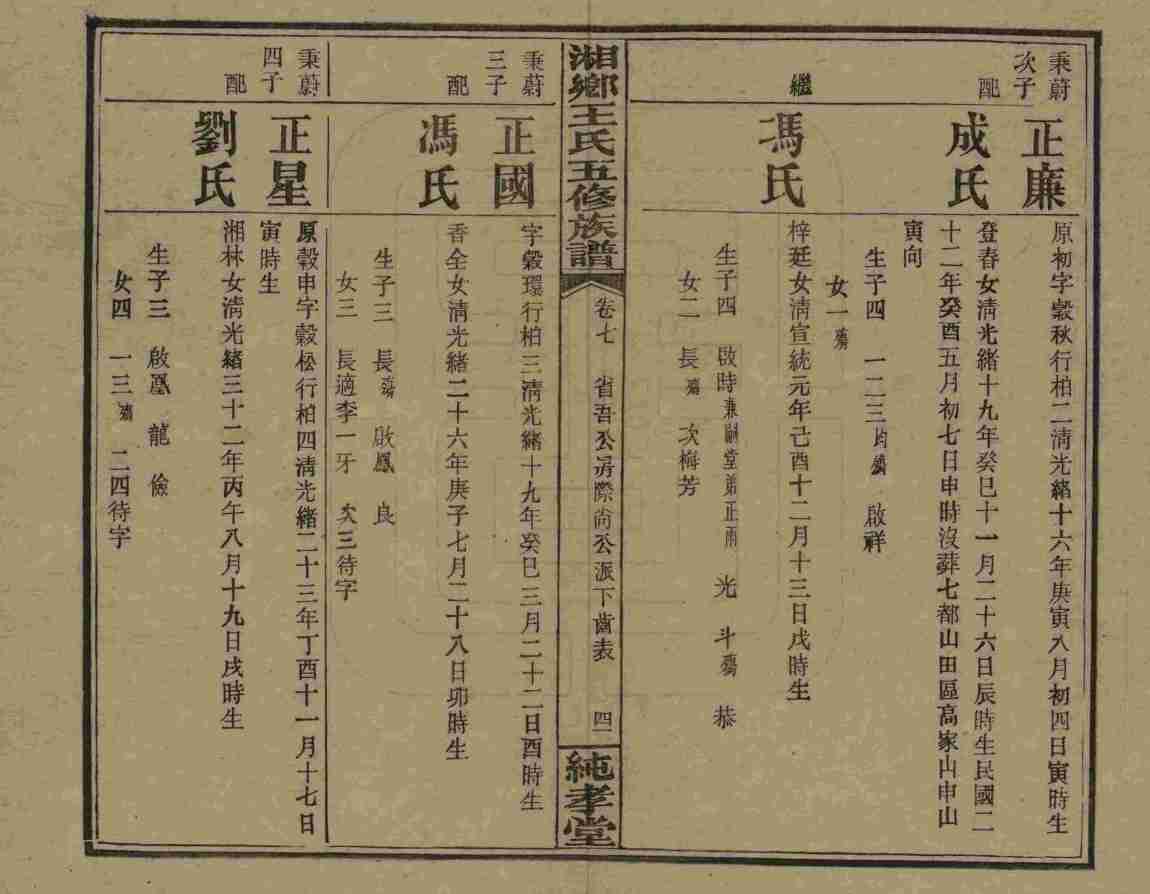 秉蔚次子
正廉
原初字穀秋行柏二清光緒十六年庚寅八月初四日寅時生
配
成氏
登春女清光緒十九年癸巳十一月二十六日辰時生民國二
十二年癸酉五月初七日申時沒葬七都山田區高家山申山
寅向
生子四 一二三均殤 啟祥
女一殤
繼
馮氏
梓廷女清宣統元年己酉十二月十三日戌時生
生子四 啟時兼嗣堂弟正雨 光 斗殤 恭
女二 長殤 次梅芳
湘鄉王氏五修族譜
卷七 省吾公房際尚公派下齒表 四一
純孝堂
秉蔚三子
正國
字穀環行柏三清光緒十九年癸巳三月二十二日酉時生
配
馮氏
香全女清光緒二十六年庚子七月二十八日卯時生
生子三 長殤 啟鳳 良
女三 長適李一牙 次三待字
秉蔚四子
正星
原穀申字穀松行柏四清光緒二十三年丁酉十一月十七日
寅時生
配
劉氏
湘林女清光緒三十二年丙午八月十九日戌時生
生子三 啟鳳 龍 儉
女四 一三殤 二四待字